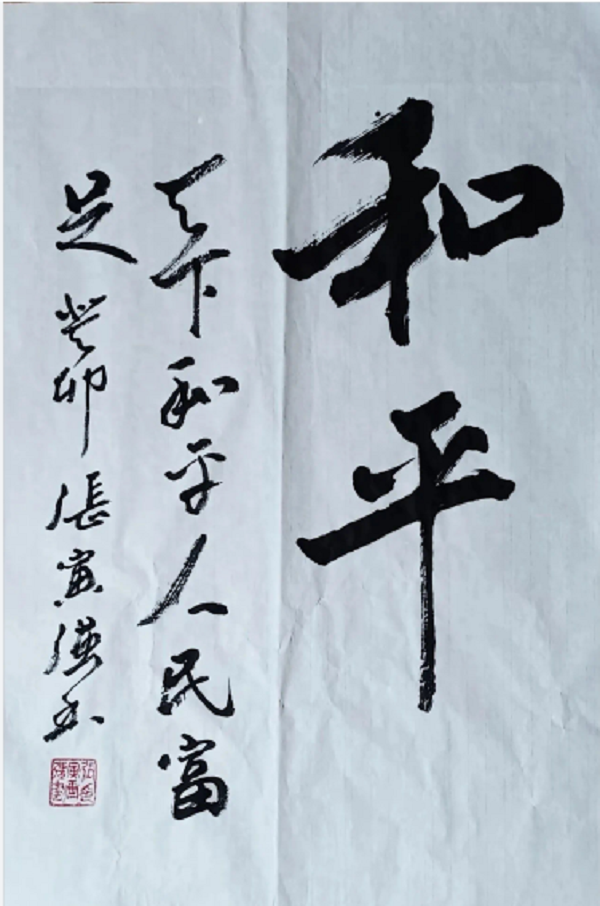 和平
天下和平人民富
足 癸卯 張寅 书